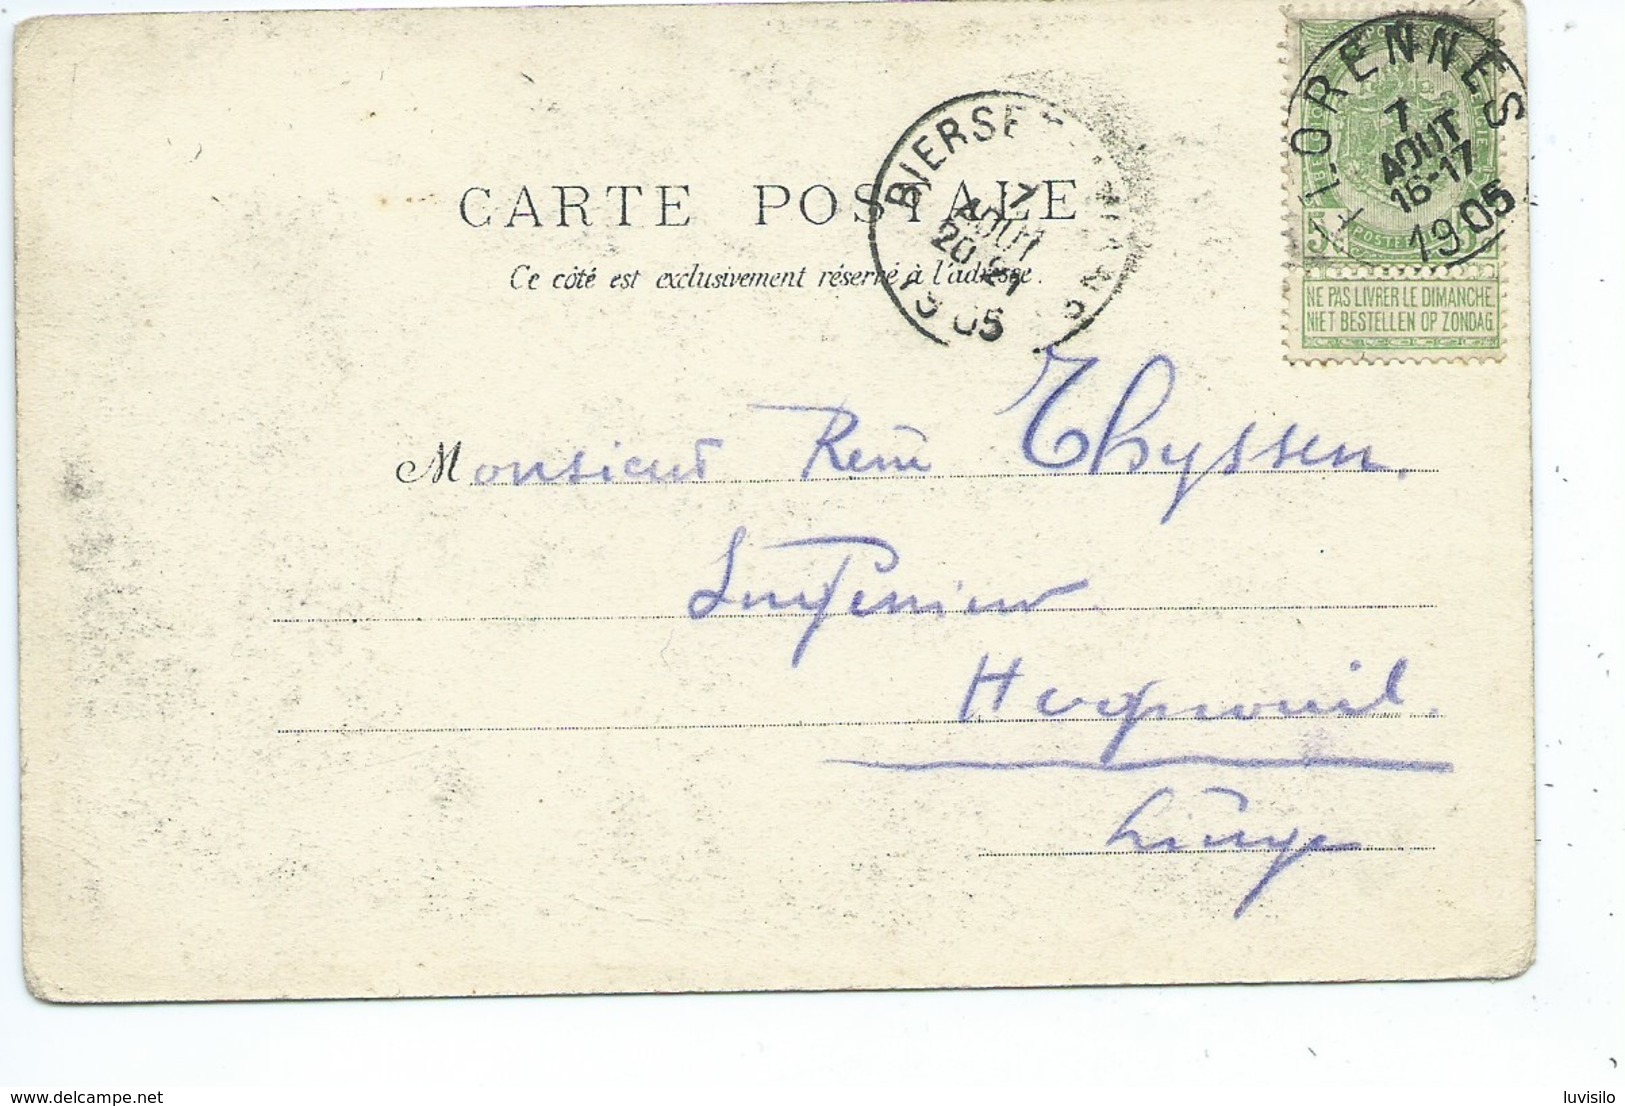 CARTE POSTALE
Ce côté est exclusivement réservé à l'adresse.
BIERSET
7
AOUT
20-21
1905
FLORENNES
7
AOUT
16-17
1905
NE PAS LIVRER LE DIMANCHE
NIET BESTELLEN OP ZONDAG
Monsieur René Thyssen.
Ingénieur
Liége
delcampe.net
luvisilo